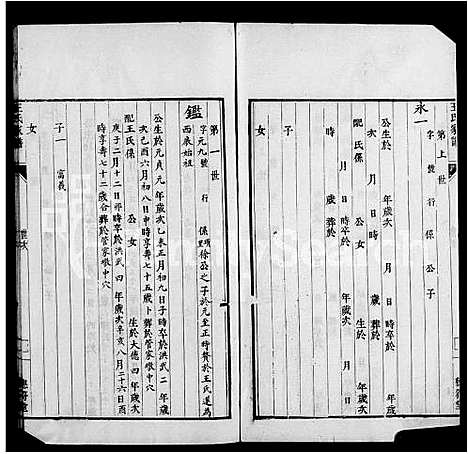 王氏家譜
第上世
永一
字 號 行 係 公子
公生於 年歲次 月 日 時卒於
年歲次 月 日 時 歲 葬於
配氏係 公女 生於 年歲次
月 日 時卒於 年歲次 月 日
時 歲 葬於
子
女
第一世
鑑
字元九號 行 係瑣徐公之子於元至正時贅於王氏遂為
西族始祖
公生於元貞元年歲次乙未正月初九日子時卒於洪武二年歲
次己酉六月初八日申時享壽七十五歲卜葬於管家墩中穴
配王氏係 公女 生於大德四年歲次
庚子二月十二日卯時卒於洪武四年歲次辛亥八月二十六日酉
時享壽七十二歲合葬於管家墩中穴
子一 富義
女
王氏家譜
世次